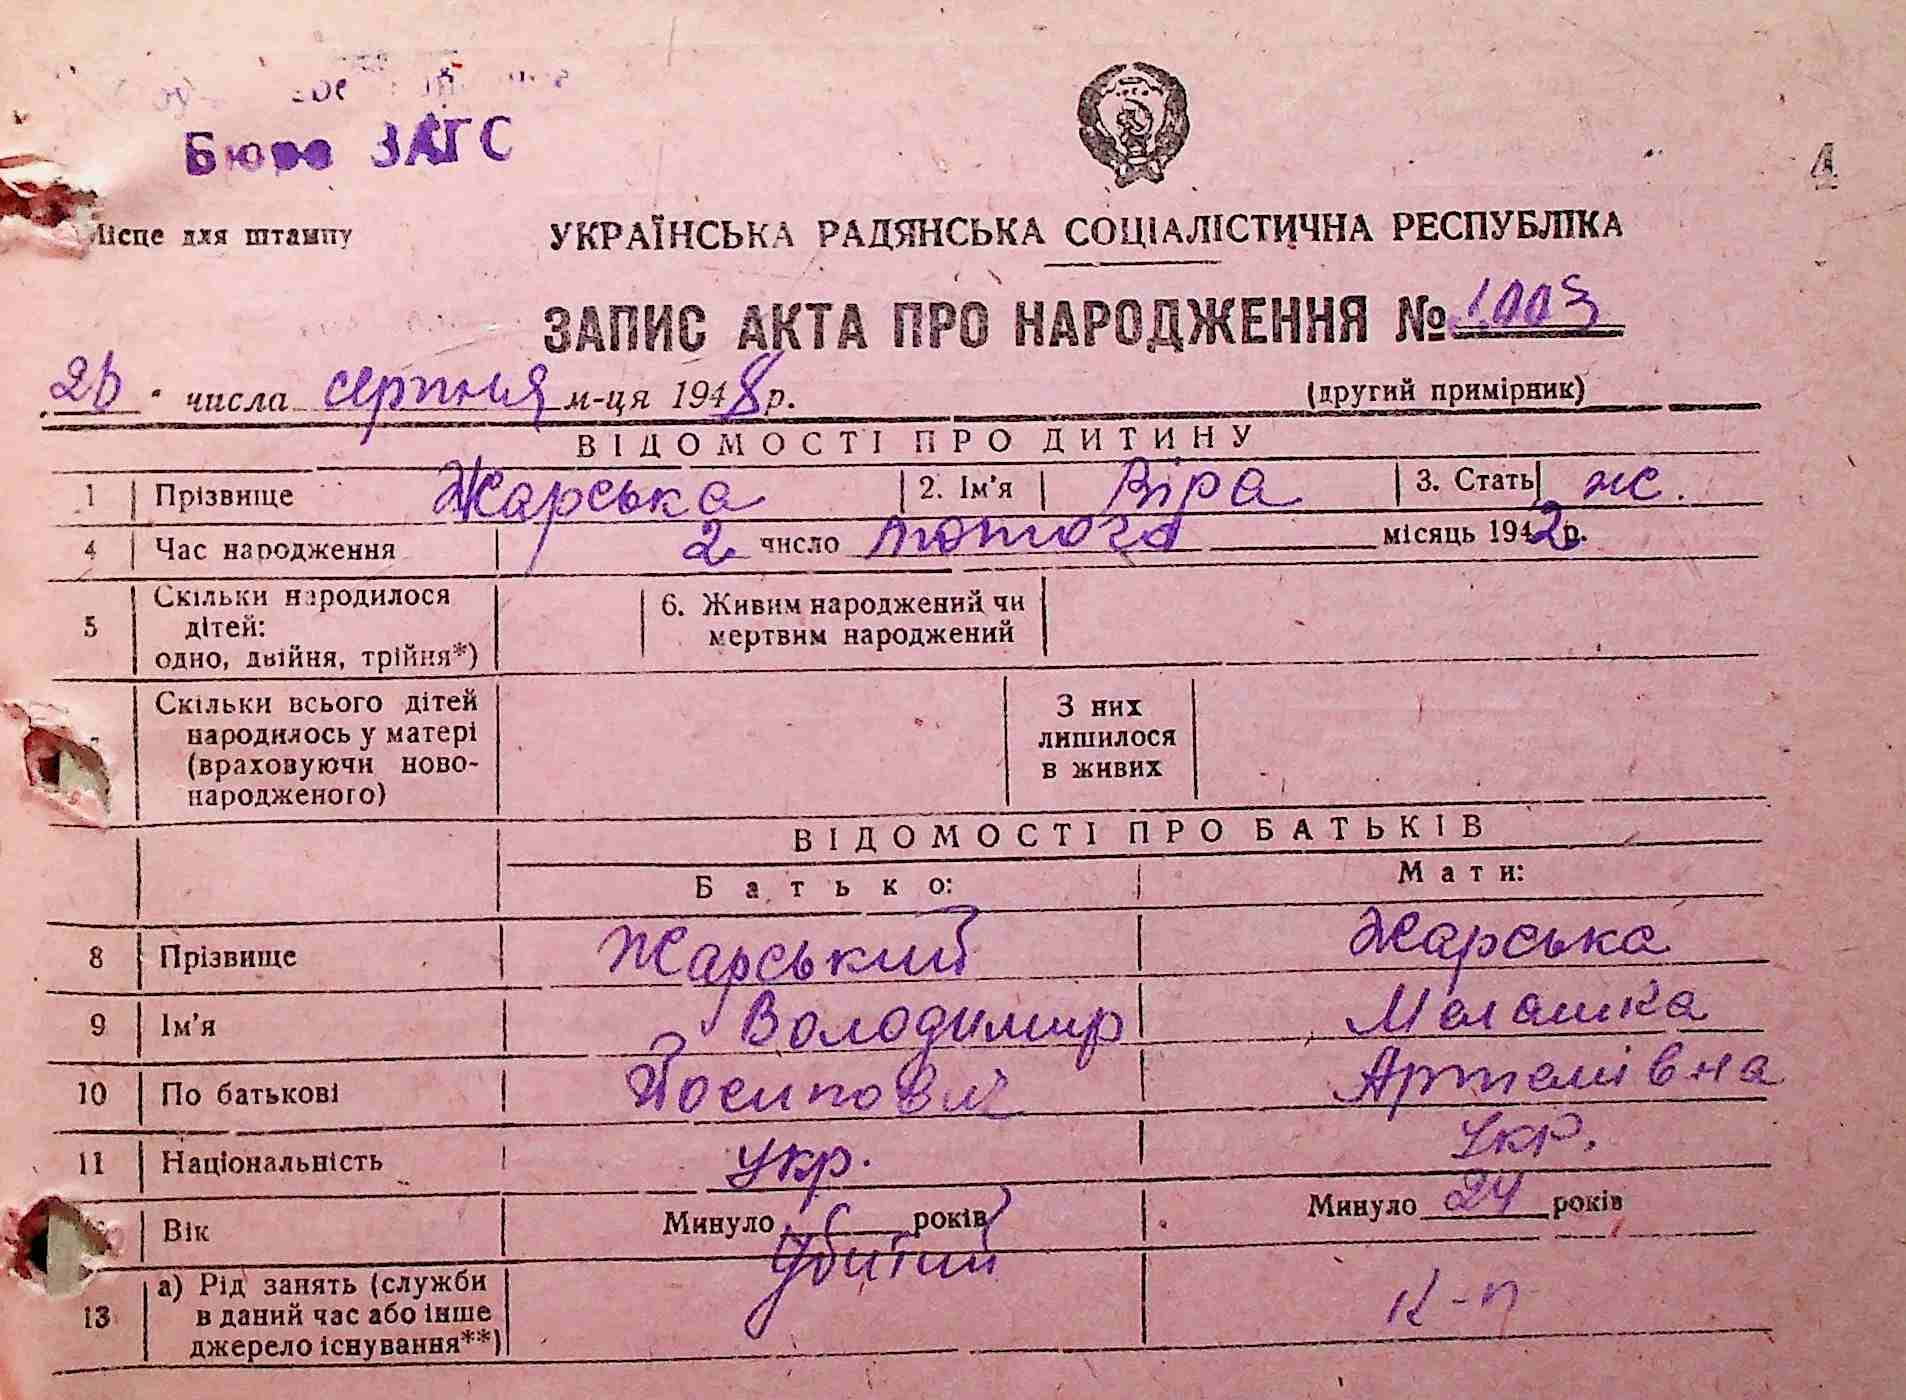 Бюро ЗАГС
4
Місце для штампу
УКРАЇНСЬКА РАДЯНСЬКА СОЦІАЛІСТИЧНА РЕСПУБЛІКА
ЗАПИС АКТА ПРО НАРОДЖЕННЯ № 1003
числа серпня м-ця 1948 р.
(другий примірник)
ВІДОМОСТІ ПРО ДИТИНУ
1 Прізвище Жарська 2. Ім'я Віра 3. Стать ж.
4 Час народження 2 число лютого місяць 1942 р.
5 Скільки народилося дітей: одно, двійня, трійня*)
6. Живим народжений чи мертвим народжений
Скільки всього дітей народилось у матері (враховуючи ново-народженого)
З них лишилося в живих
ВІДОМОСТІ ПРО БАТЬКІВ
Батько: Мати:
8 Прізвище Жарський Жарська
9 Ім'я Володимир Мелашка
10 По батькові Йосипович Артемівна
11 Національність укр. Укр.
Вік Минуло років Минуло 24 років
Убитий
13 а) Рід занять (служби в даний час або інше джерело існування**) к-п